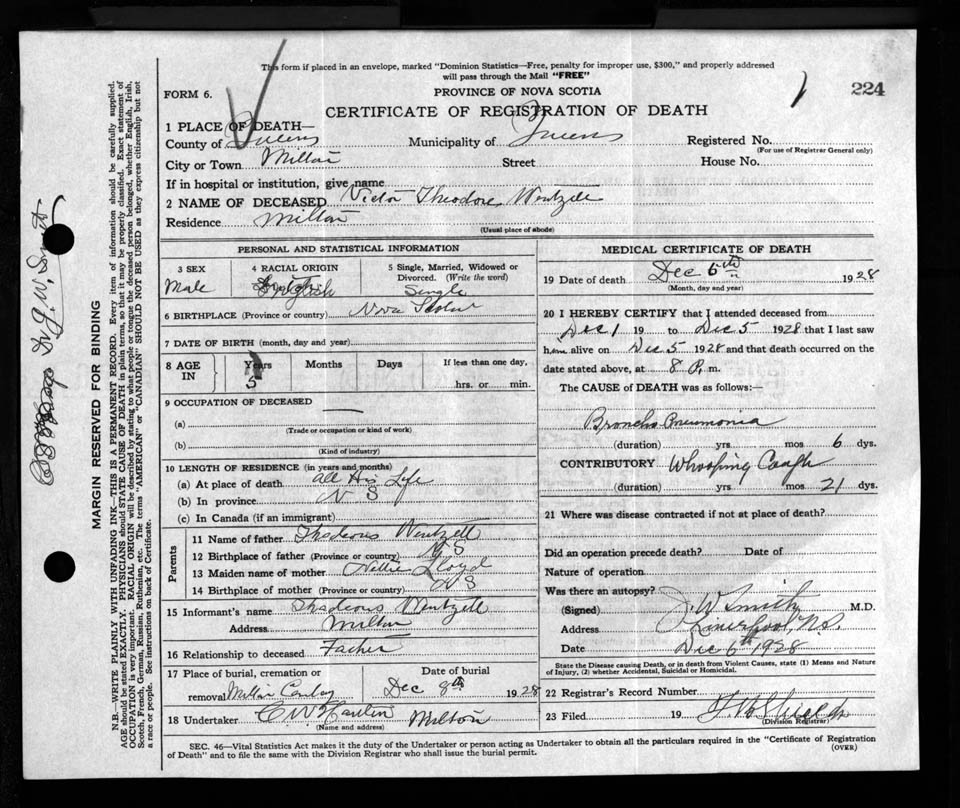 This form if placed in an envelope, marked "Dominion Statistics—Free, penalty for improper use, $300," and properly addressed
will pass through the Mail "FREE"
FORM 6.
PROVINCE OF NOVA SCOTIA
224
CERTIFICATE OF REGISTRATION OF DEATH
1 PLACE OF DEATH—
County of Queens Municipality of Queens Registered No.
(For use of Registrar General only)
City or Town Milton Street House No.
If in hospital or institution, give name
2 NAME OF DECEASED Victor Theodore Wentzell
Residence Milton
(Usual place of abode)
PERSONAL AND STATISTICAL INFORMATION
3 SEX 4 RACIAL ORIGIN 5 Single, Married, Widowed or
Divorced. (Write the word)
Male English Single
6 BIRTHPLACE (Province or country) Nova Scotia
7 DATE OF BIRTH (month, day and year)
8 AGE IN Years Months Days If less than one day,
5 hrs. or min.
9 OCCUPATION OF DECEASED
(a)
(Trade or occupation or kind of work)
(b)
(Kind of industry)
10 LENGTH OF RESIDENCE (in years and months)
(a) At place of death All His Life
(b) In province N S
(c) In Canada (if an immigrant)
Parents
11 Name of father Thadeous Wentzell
12 Birthplace of father (Province or country) N S
13 Maiden name of mother Nettie Lloyd
14 Birthplace of mother (Province or country) N S
15 Informant's name Thadeous Wentzell
Address Milton
16 Relationship to deceased Father
17 Place of burial, cremation or Date of burial
removal Milton Dec 8th 1928
18 Undertaker Milton
(Name and address)
MEDICAL CERTIFICATE OF DEATH
19 Date of death Dec 6th 1928
(Month, day and year)
20 I HEREBY CERTIFY that I attended deceased from
Dec 1 19 to Dec 5 1928 that I last saw
him alive on Dec 5 1928 and that death occurred on the
date stated above, at 8 P. m.
The CAUSE of DEATH was as follows:—
Broncho Pneumonia
(duration) yrs mos 6 dys.
CONTRIBUTORY Whooping Cough
(duration) yrs mos 21 dys.
21 Where was disease contracted if not at place of death?
Did an operation precede death? Date of
Nature of operation
Was there an autopsy?
(Signed) J. W. Smith M.D.
Address Liverpool, N.S.
Date Dec 6th 1928
State the Disease causing Death, or in death from Violent Causes, state (1) Means and Nature
of Injury, (2) whether Accidental, Suicidal or Homicidal.
22 Registrar's Record Number
23 Filed 19
(Division Registrar)
SEC. 46—Vital Statistics Act makes it the duty of the Undertaker or person acting as Undertaker to obtain all the particulars required in the "Certificate of Registration
of Death" and to file the same with the Division Registrar who shall issue the burial permit.
(OVER)
MARGIN RESERVED FOR BINDING
N.B.—WRITE PLAINLY WITH UNFADING INK—THIS IS A PERMANENT RECORD. Every item of information should be carefully supplied.
AGE should be stated EXACTLY. PHYSICIANS should STATE CAUSE OF DEATH in plain terms, so that it may be properly classified. Exact statement of
OCCUPATION is very important. RACIAL ORIGIN will be described by stating to what people or tongue the deceased person belonged, whether English, Irish,
Scotch, French, German, Russian, Ruthenian, etc. The terms "AMERICAN" or "CANADIAN" SHOULD NOT BE USED as they express citizenship but not
a race or people. See instructions on back of Certificate.